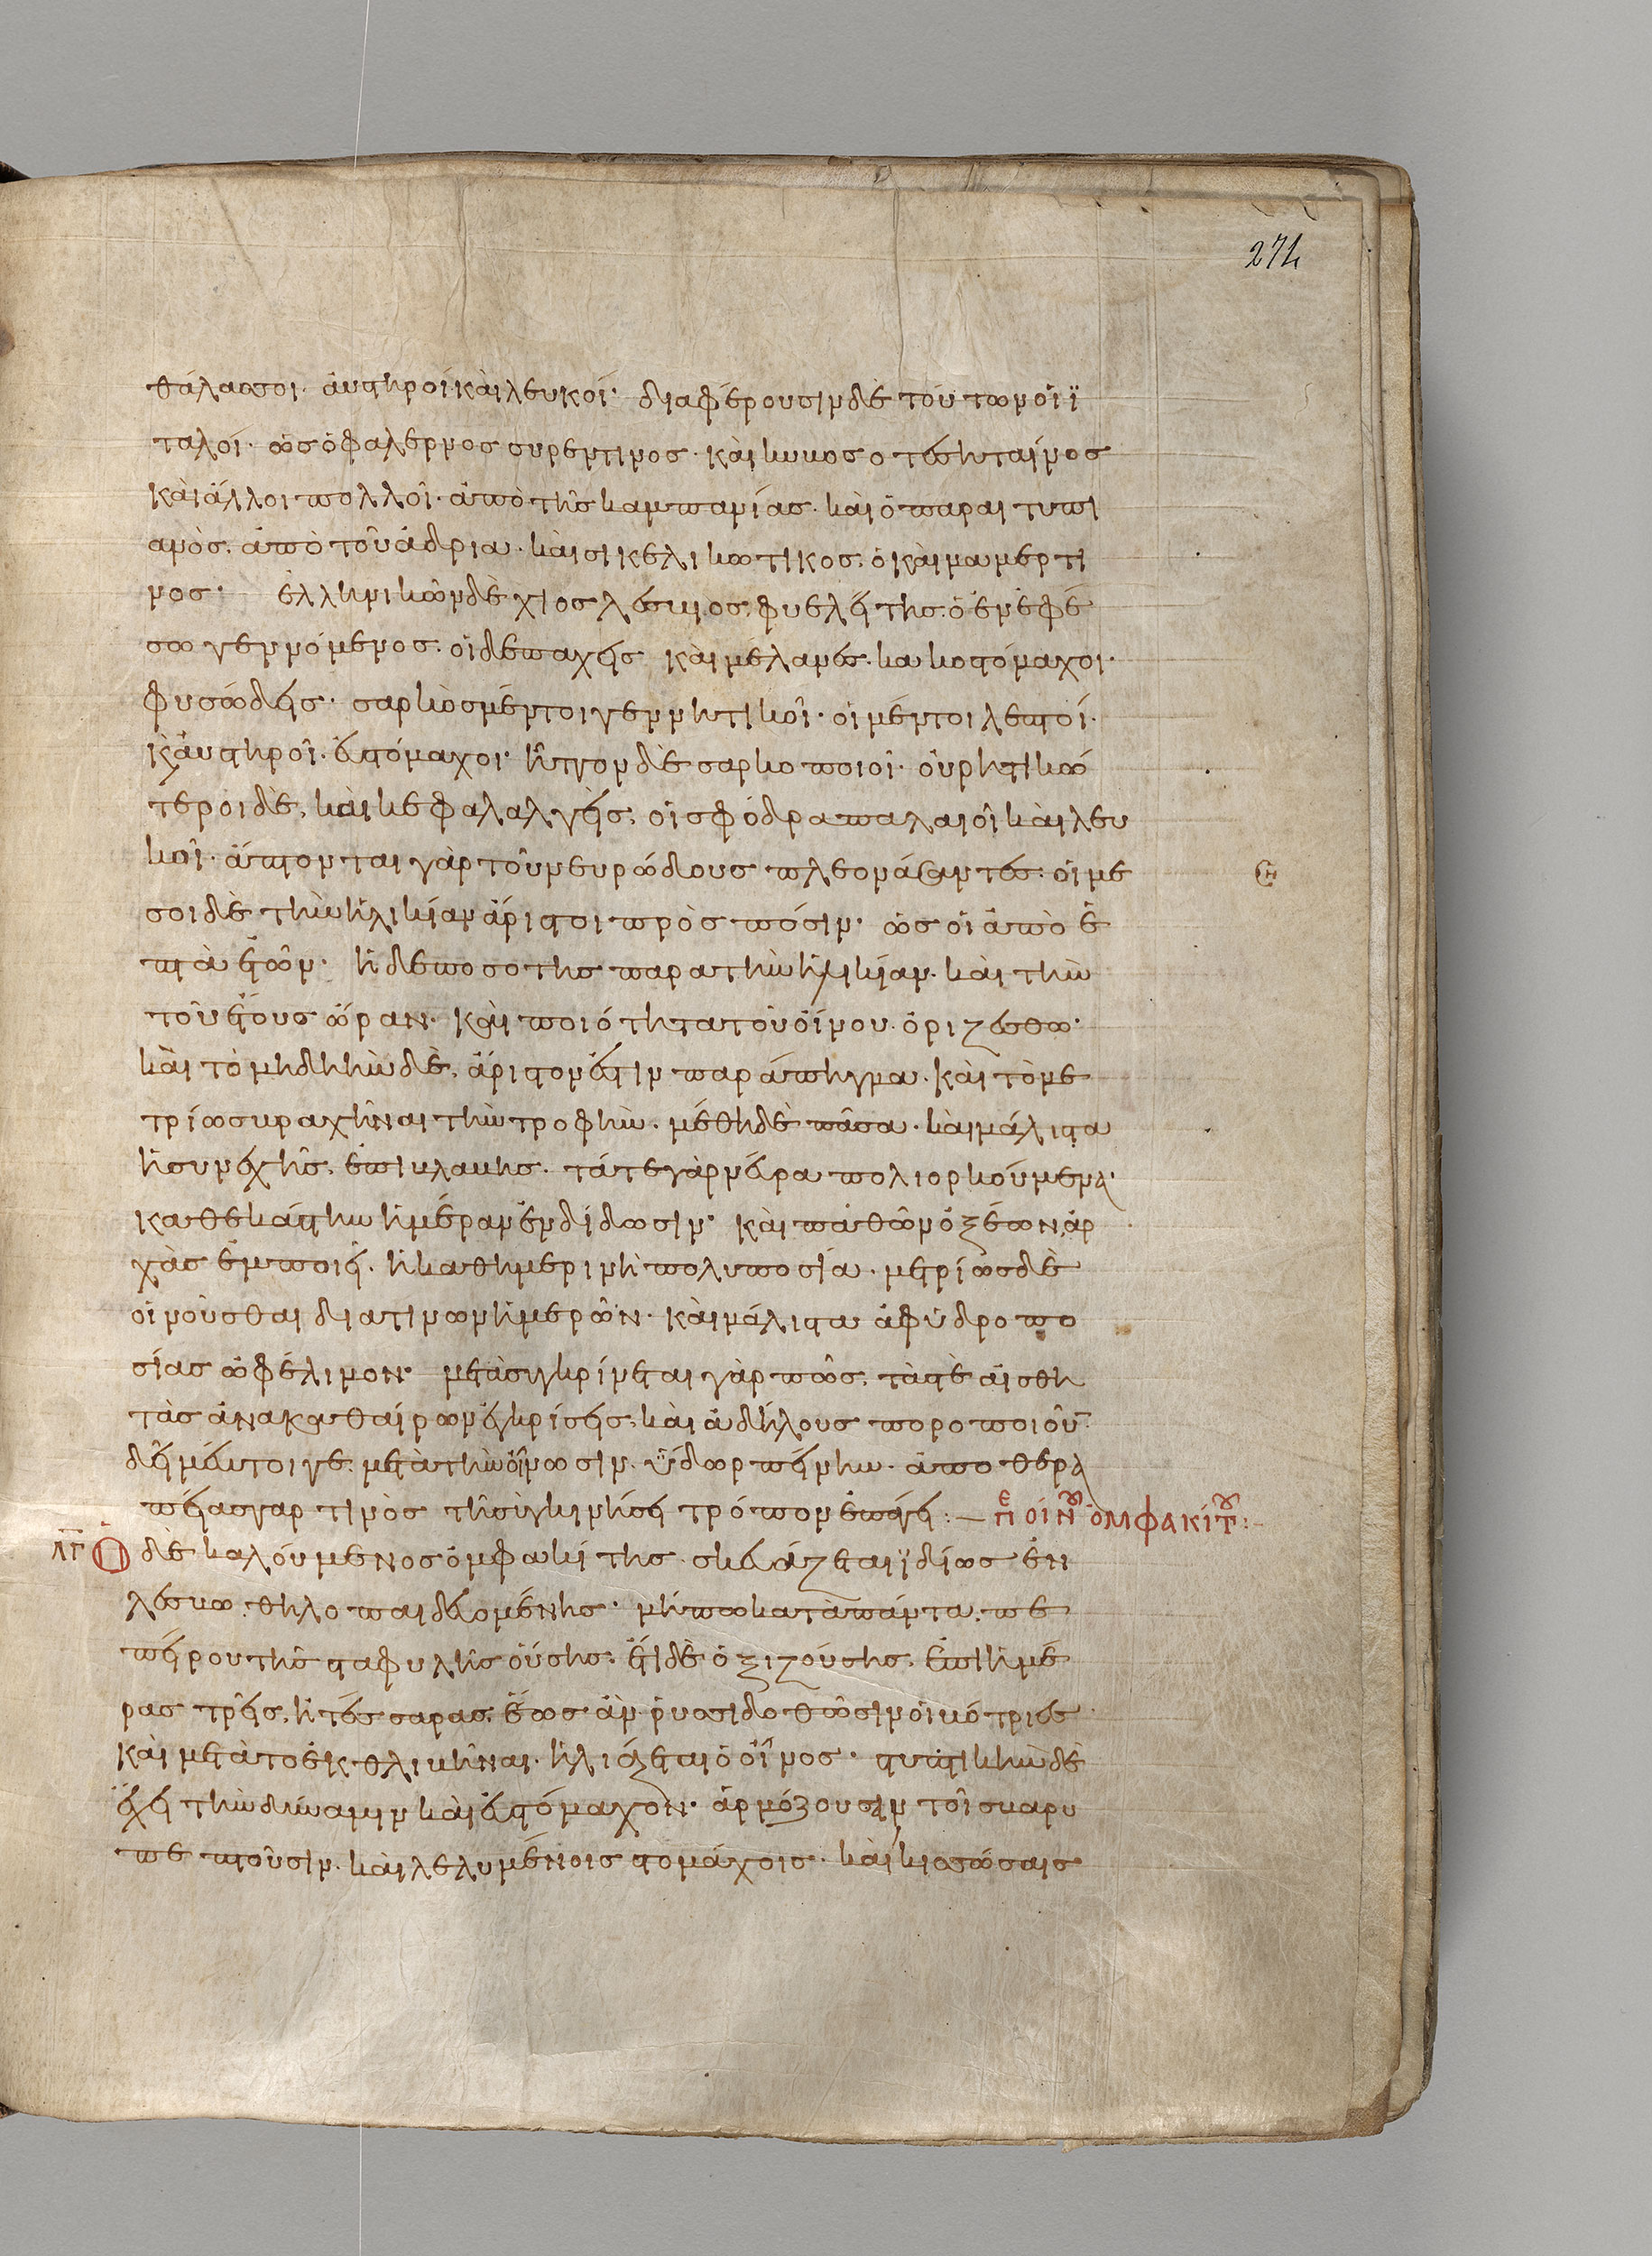 274
θάλασσοι· αὐστηροί· καὶ λευκοί· διαφέρουσιν δὲ τούτων οἱ ἰ
ταλοί· ὡς ὁ φαλερνος συρεντινος· καὶ
καὶ ἄλλοι πολλοί· ἀπὸ τῆς καμπανίας· καὶ ὁ παραι τυπι
ανὸς· ἀπὸ τοῦ ἀδρια· καὶ σικελικωτικος· ὁ καὶ μαμερτι
νος· ἑλληνικῶν δὲ χῖος λέσβιος· φυελίτης· ὁ ἐν ἐφέ
σω γεννόμενος· οἱ δὲ παχεῖς καὶ μέλανες· κακοστόμαχοι·
φυσώδεις· σαρκὸς μέντοι γεννητικοί· οἱ μέντοι λεπτοί·
κ αὐστηροί· εὐστόμαχοι· ἧττον δὲ σαρκοποιοί· οὐρητικώ
τεροι δὲ, καὶ κεφαλαλγεῖς, οἱ σφόδρα παλαιοὶ καὶ λευ
κοί· ἅπτονται γὰρ τοῦ νευρώδους πλεονάσαντες· οἱ με
σοι δὲ τὴν ἡλικίαν ἄριστοι πρὸς πόσιν· ὡς οἱ ἀπὸ ἑ
πτὰ ἐτῶν· ἡ δὲ ποσοτης παρα τὴν ἡλικίαν· καὶ τὴν
τοῦ ἔτους ὥραν· καὶ ποιότητα τοῦ οἴνου· ὁριζέσθω·
καὶ τὸ μὴ διψῆν δὲ, ἄριστον ἐστιν παράπηγμα· καὶ τὸ με
τρίως βραχῆναι τὴν τροφήν· μέθη δὲ πᾶσα· καὶ μάλιστα
ἡ συνεχὴς, ἐπιβλαβης· τά τε γὰρ νεῦρα πολιορκούμενα·
καθεκάστην ἡμέραν ἐνδίδωσιν· καὶ παθῶν ὀξέων, ἀρ
χὰς ἐμποιεῖ· ἡ καθημερινὴ πολυποσία· μετρίως δὲ
οἰνοῦσθαι δια τινων ἡμερῶν· καὶ μάλιστα ἀφ ὑδροπο
σίας ὠφέλιμον· μετασυγκρίνεται γὰρ πῶς, τάς τε αἰσθη
τὰς ἀνακαθαίρων ἐκκρίσεις, καὶ ἀδήλους πόρο ποιοῦ
δεῖ μέντοι γε· μετὰ τὴν οἴνωσιν· ὕδωρ πείνην· ἀποθερα
πείας γαρ τινὸς τῇ συγκινήσει τρόπον ἐπάγει:— π οἴν ὀμφακίτ:-
λγ Ὁ δὲ καλούμενος ὀμφακίτης· σκευάζεται ἰδίως ἐν
λέσβω· θηλοπαιδευομένης· μήπω κατὰ πάντα· πε
πείρου τῆς σταφυλῆς οὔσης· ἔτι δὲ ὀξιζούσης· ἐπι ἡμέ
ρας τρεῖς, ἢ τέσσαρας, ἕως ἂν ῥυσιδοθῶσιν οἱ βότριες
καὶ μετὰ τὸ ἐκθλιβῆναι· ἡλιάζεται ὁ οἶνος· στυπτικὴν δὲ
ἔχει τὴν δύναμιν καὶ εὐστόμαχον· ἁρμόζουσιν τοῖς βαρυ
πε πτοῦσιν· καὶ λελυμένοις στομάχοις· καὶ κισσώσαις